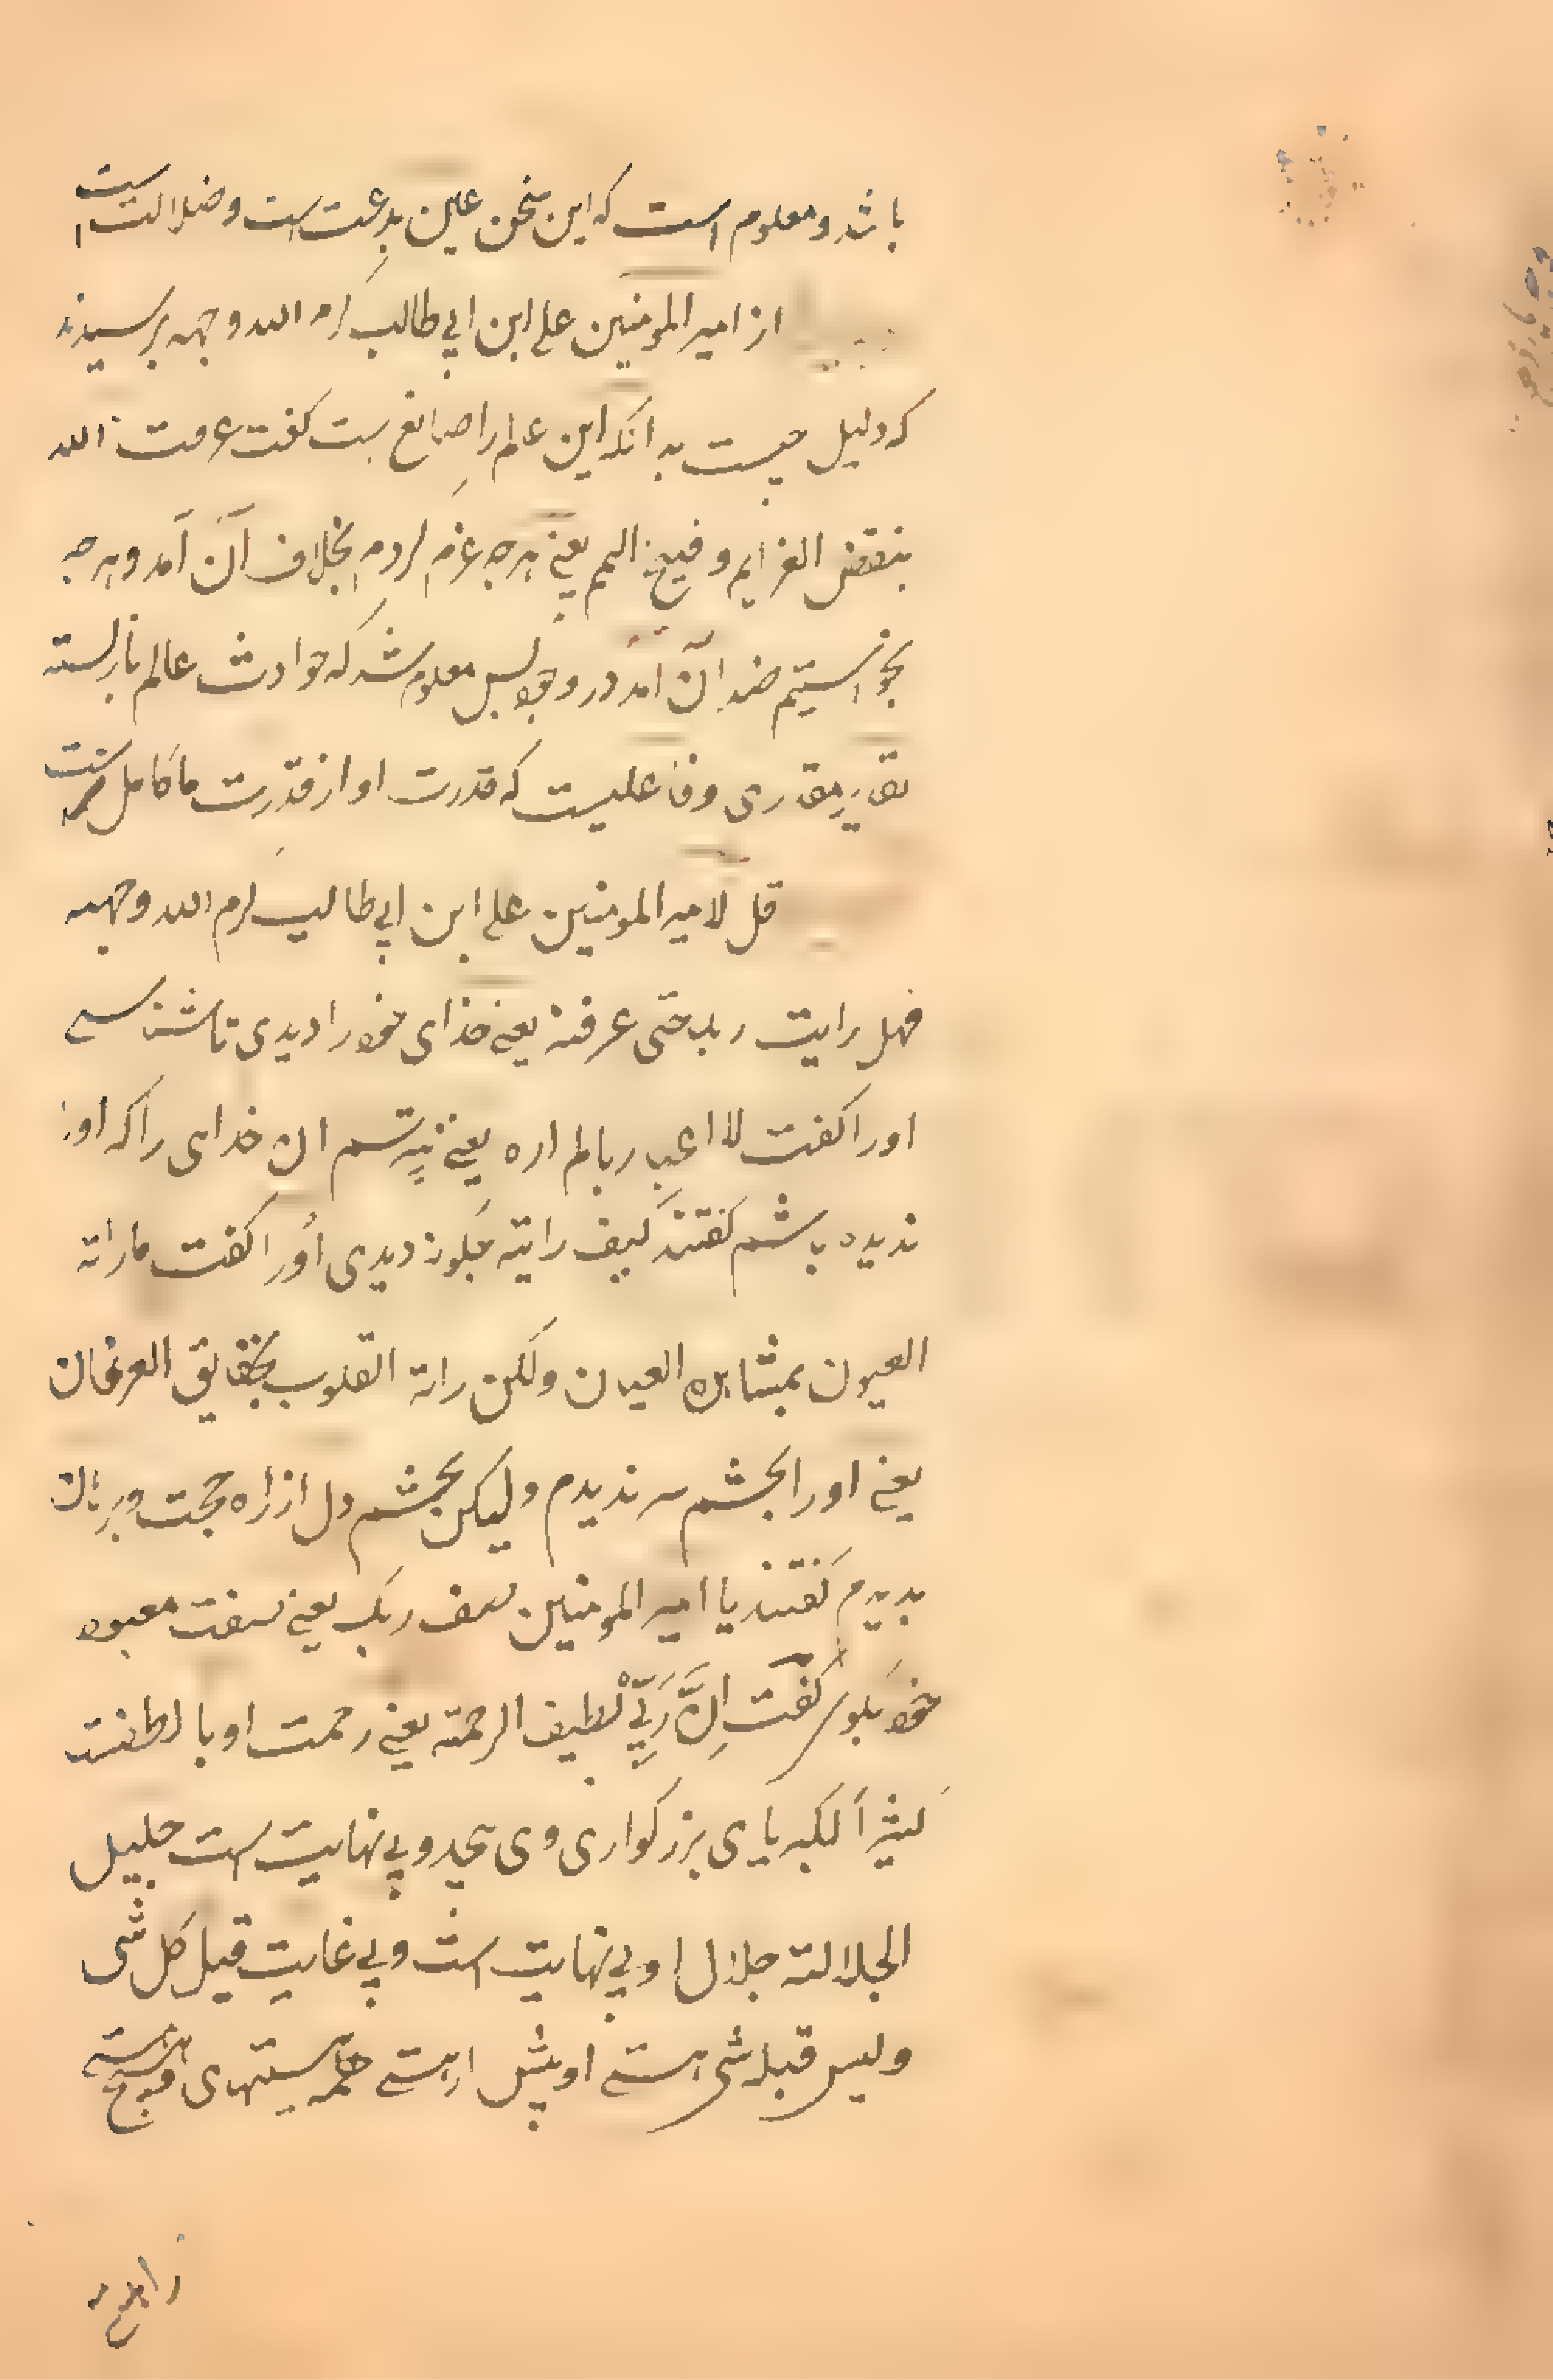 باشد و معلوم است که این سخن عین بدعت است و ضلالت است
از امیر المومنین علی ابن ابی طالب کرم الله وجهه پرسیدند
که دلیل چیست بدانکه این عالم را صانع ست کفت عرفت الله
بنقض العزایم و فسخ الهمم یعنی هرچه عزم کردم بخلاف آن آمد و هرچه
بخواستیم ضد آن آمد در وجود پس معلوم شد که حوادث عالم بازبسته
بتقدیر مقدری و فاعلیست که قدرت او از قدرت ما کامل
قل لامیر المومنین علی ابن ابی طالب کرم الله وجهه
فهل رایت ربک حتی عرفته یعنی خدای خود را دیدی تا شناسی
اورا کفت لا اعبد ربا لم اره یعنی نپرستم ان خدای را که اورا
ندیده باشم کفتند کیف رایته چکونه دیدی اورا کفت ما راته
العیون بمشاهده العیان ولکن راته القلوب بحقایق العرفان
یعنی اورا بچشم سر ندیدم ولیکن بچشم دل از راه حجت و برهان
بدیدم کفتند یا امیر المومنین صف ربک یعنی صفت معبود
خود بکو کفت اِنَّ رَبِّی لطیف الرحمة یعنی رحمت او با لطافت
کثیر الکبریای بزرکواری وی بیحد و بی نهایت است جلیل
الجلالة جلال او بی نهایت است و بی غایت قبل کل شی
ولیس قبله شی هستی او پیش از هستی همه هستیهای